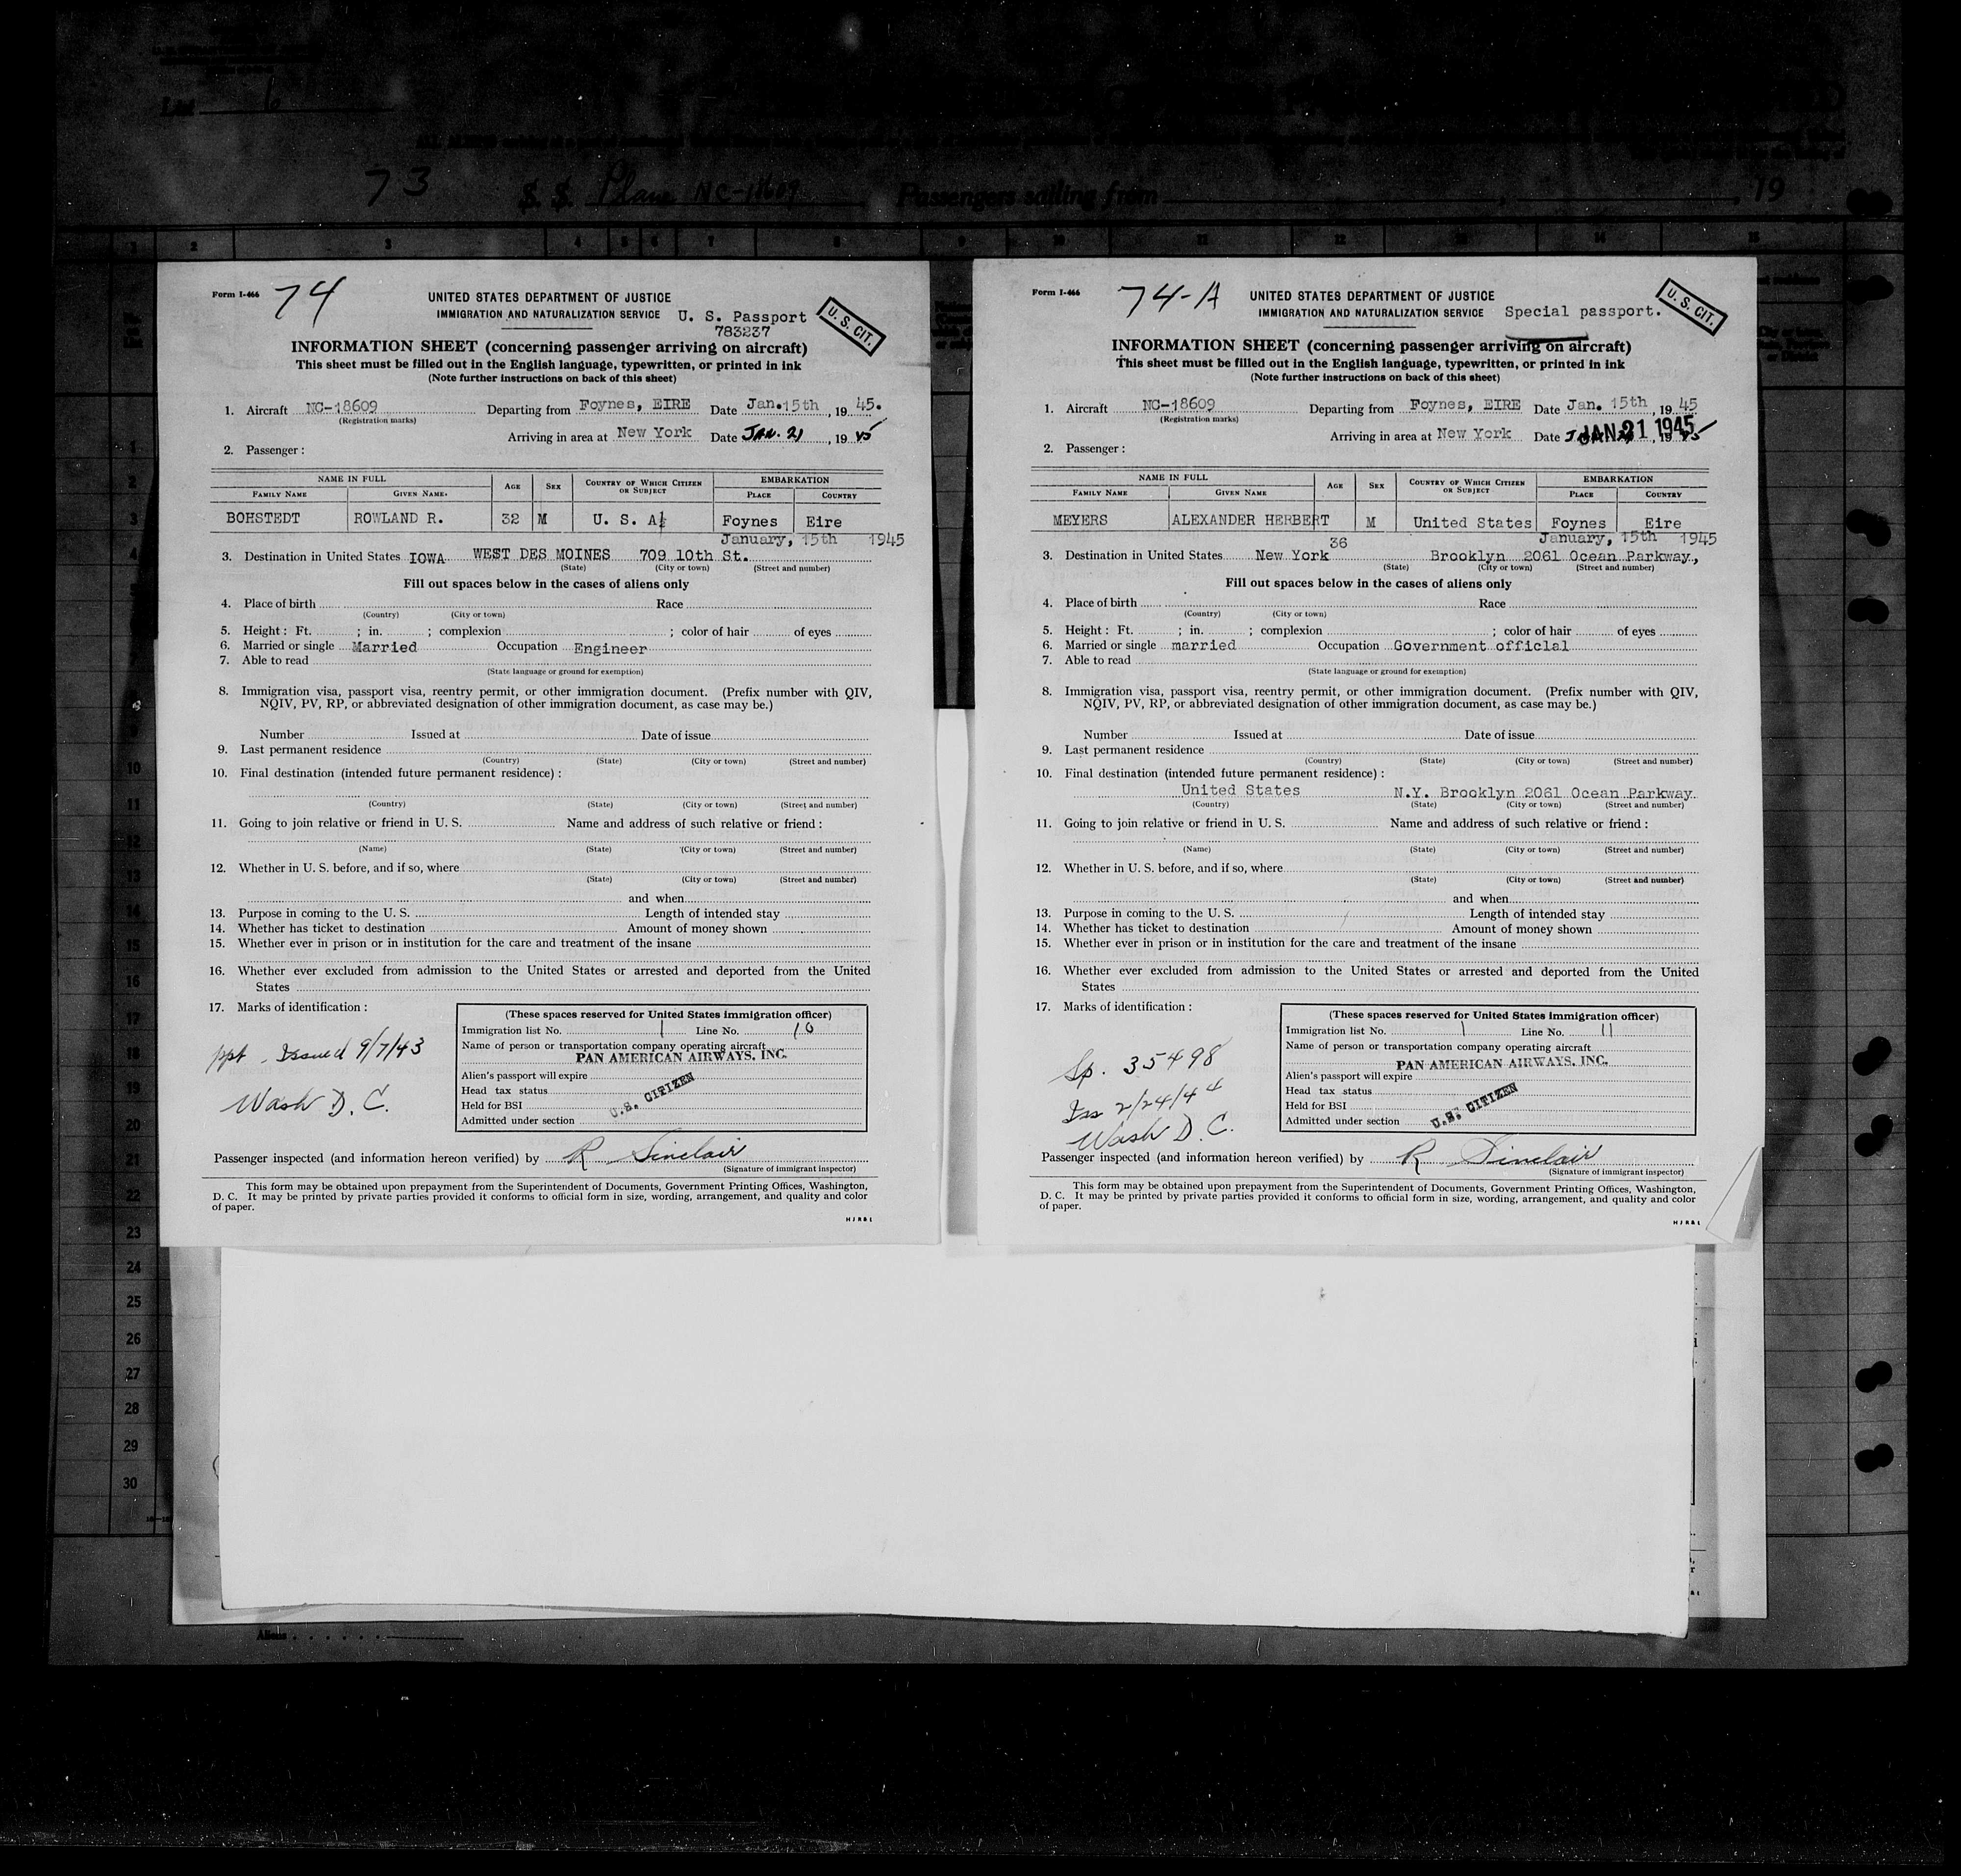 List 6
73 S. S. Plane NC-18609 Passengers sailing from , 19
1 2 3 4 5 6 7 8 9 10 11 12 13 14 15
Form I-466 74
UNITED STATES DEPARTMENT OF JUSTICE
IMMIGRATION AND NATURALIZATION SERVICE U. S. Passport
783237
U. S. CIT.
INFORMATION SHEET (concerning passenger arriving on aircraft)
This sheet must be filled out in the English language, typewritten, or printed in ink
(Note further instructions on back of this sheet)
1. Aircraft NC-18609 Departing from Foynes, EIRE Date Jan.15th , 19 45.
(Registration marks)
Arriving in area at New York Date JAN. 21 , 19 45
2. Passenger :
NAME IN FULL AGE SEX COUNTRY OF WHICH CITIZEN OR SUBJECT EMBARKATION
FAMILY NAME GIVEN NAME. PLACE COUNTRY
BOHSTEDT ROWLAND R. 32 M U. S. A. Foynes Eire
January, 15th 1945
3. Destination in United States IOWA WEST DES MOINES 709 10th St.
(State) (City or town) (Street and number)
Fill out spaces below in the cases of aliens only
4. Place of birth Race
(Country) (City or town)
5. Height : Ft. ; in. ; complexion ; color of hair of eyes
6. Married or single Married Occupation Engineer
7. Able to read
(State language or ground for exemption)
8. Immigration visa, passport visa, reentry permit, or other immigration document. (Prefix number with QIV,
NQIV, PV, RP, or abbreviated designation of other immigration document, as case may be.)
Number Issued at Date of issue
9. Last permanent residence
(Country) (State) (City or town) (Street and number)
10. Final destination (intended future permanent residence) :
(Country) (State) (City or town) (Street and number)
11. Going to join relative or friend in U. S. Name and address of such relative or friend :
(Name) (State) (City or town) (Street and number)
12. Whether in U. S. before, and if so, where
(State) (City or town) (Street and number)
and when
13. Purpose in coming to the U. S. Length of intended stay
14. Whether has ticket to destination Amount of money shown
15. Whether ever in prison or in institution for the care and treatment of the insane
16. Whether ever excluded from admission to the United States or arrested and deported from the United
States
17. Marks of identification :
ppt. Issued 9/7/43
Wash D. C.
(These spaces reserved for United States immigration officer)
Immigration list No. 1 Line No. 10
Name of person or transportation company operating aircraft
PAN AMERICAN AIRWAYS, INC.
Alien's passport will expire
Head tax status
Held for BSI
Admitted under section
U.S. CITIZEN
Passenger inspected (and information hereon verified) by R Sinclair
(Signature of immigrant inspector)
This form may be obtained upon prepayment from the Superintendent of Documents, Government Printing Offices, Washington,
D. C. It may be printed by private parties provided it conforms to official form in size, wording, arrangement, and quality and color
of paper.
H J R & L
Form I-466 74-A
UNITED STATES DEPARTMENT OF JUSTICE
IMMIGRATION AND NATURALIZATION SERVICE Special passport.
U. S. CIT.
INFORMATION SHEET (concerning passenger arriving on aircraft)
This sheet must be filled out in the English language, typewritten, or printed in ink
(Note further instructions on back of this sheet)
1. Aircraft NC-18609 Departing from Foynes, EIRE Date Jan. 15th , 19 45
(Registration marks)
Arriving in area at New York Date JAN 21 1945 , 19 45
2. Passenger :
NAME IN FULL AGE SEX COUNTRY OF WHICH CITIZEN OR SUBJECT EMBARKATION
FAMILY NAME GIVEN NAME PLACE COUNTRY
MEYERS ALEXANDER HERBERT M United States Foynes Eire
36 January, 15th 1945
3. Destination in United States New York Brooklyn 2061 Ocean Parkway,
(State) (City or town) (Street and number)
Fill out spaces below in the cases of aliens only
4. Place of birth Race
(Country) (City or town)
5. Height : Ft. ; in. ; complexion ; color of hair of eyes
6. Married or single married Occupation Government official
7. Able to read
(State language or ground for exemption)
8. Immigration visa, passport visa, reentry permit, or other immigration document. (Prefix number with QIV,
NQIV, PV, RP, or abbreviated designation of other immigration document, as case may be.)
Number Issued at Date of issue
9. Last permanent residence
(Country) (State) (City or town) (Street and number)
10. Final destination (intended future permanent residence) :
United States N.Y. Brooklyn 2061 Ocean Parkway
(Country) (State) (City or town) (Street and number)
11. Going to join relative or friend in U. S. Name and address of such relative or friend :
(Name) (State) (City or town) (Street and number)
12. Whether in U. S. before, and if so, where
(State) (City or town) (Street and number)
and when
13. Purpose in coming to the U. S. Length of intended stay
14. Whether has ticket to destination Amount of money shown
15. Whether ever in prison or in institution for the care and treatment of the insane
16. Whether ever excluded from admission to the United States or arrested and deported from the United
States
17. Marks of identification :
Sp. 35498
Iss 2/24/44
Wash D. C.
(These spaces reserved for United States immigration officer)
Immigration list No. 1 Line No. 11
Name of person or transportation company operating aircraft
PAN AMERICAN AIRWAYS, INC.
Alien's passport will expire
Head tax status
Held for BSI
Admitted under section
U.S. CITIZEN
Passenger inspected (and information hereon verified) by R Sinclair
(Signature of immigrant inspector)
This form may be obtained upon prepayment from the Superintendent of Documents, Government Printing Offices, Washington,
D. C. It may be printed by private parties provided it conforms to official form in size, wording, arrangement, and quality and color
of paper.
H J R & L
1
2
3
4
8
9
10
11
12
13
14
15
16
17
18
19
20
21
22
23
24
25
26
27
28
29
30
Aliens